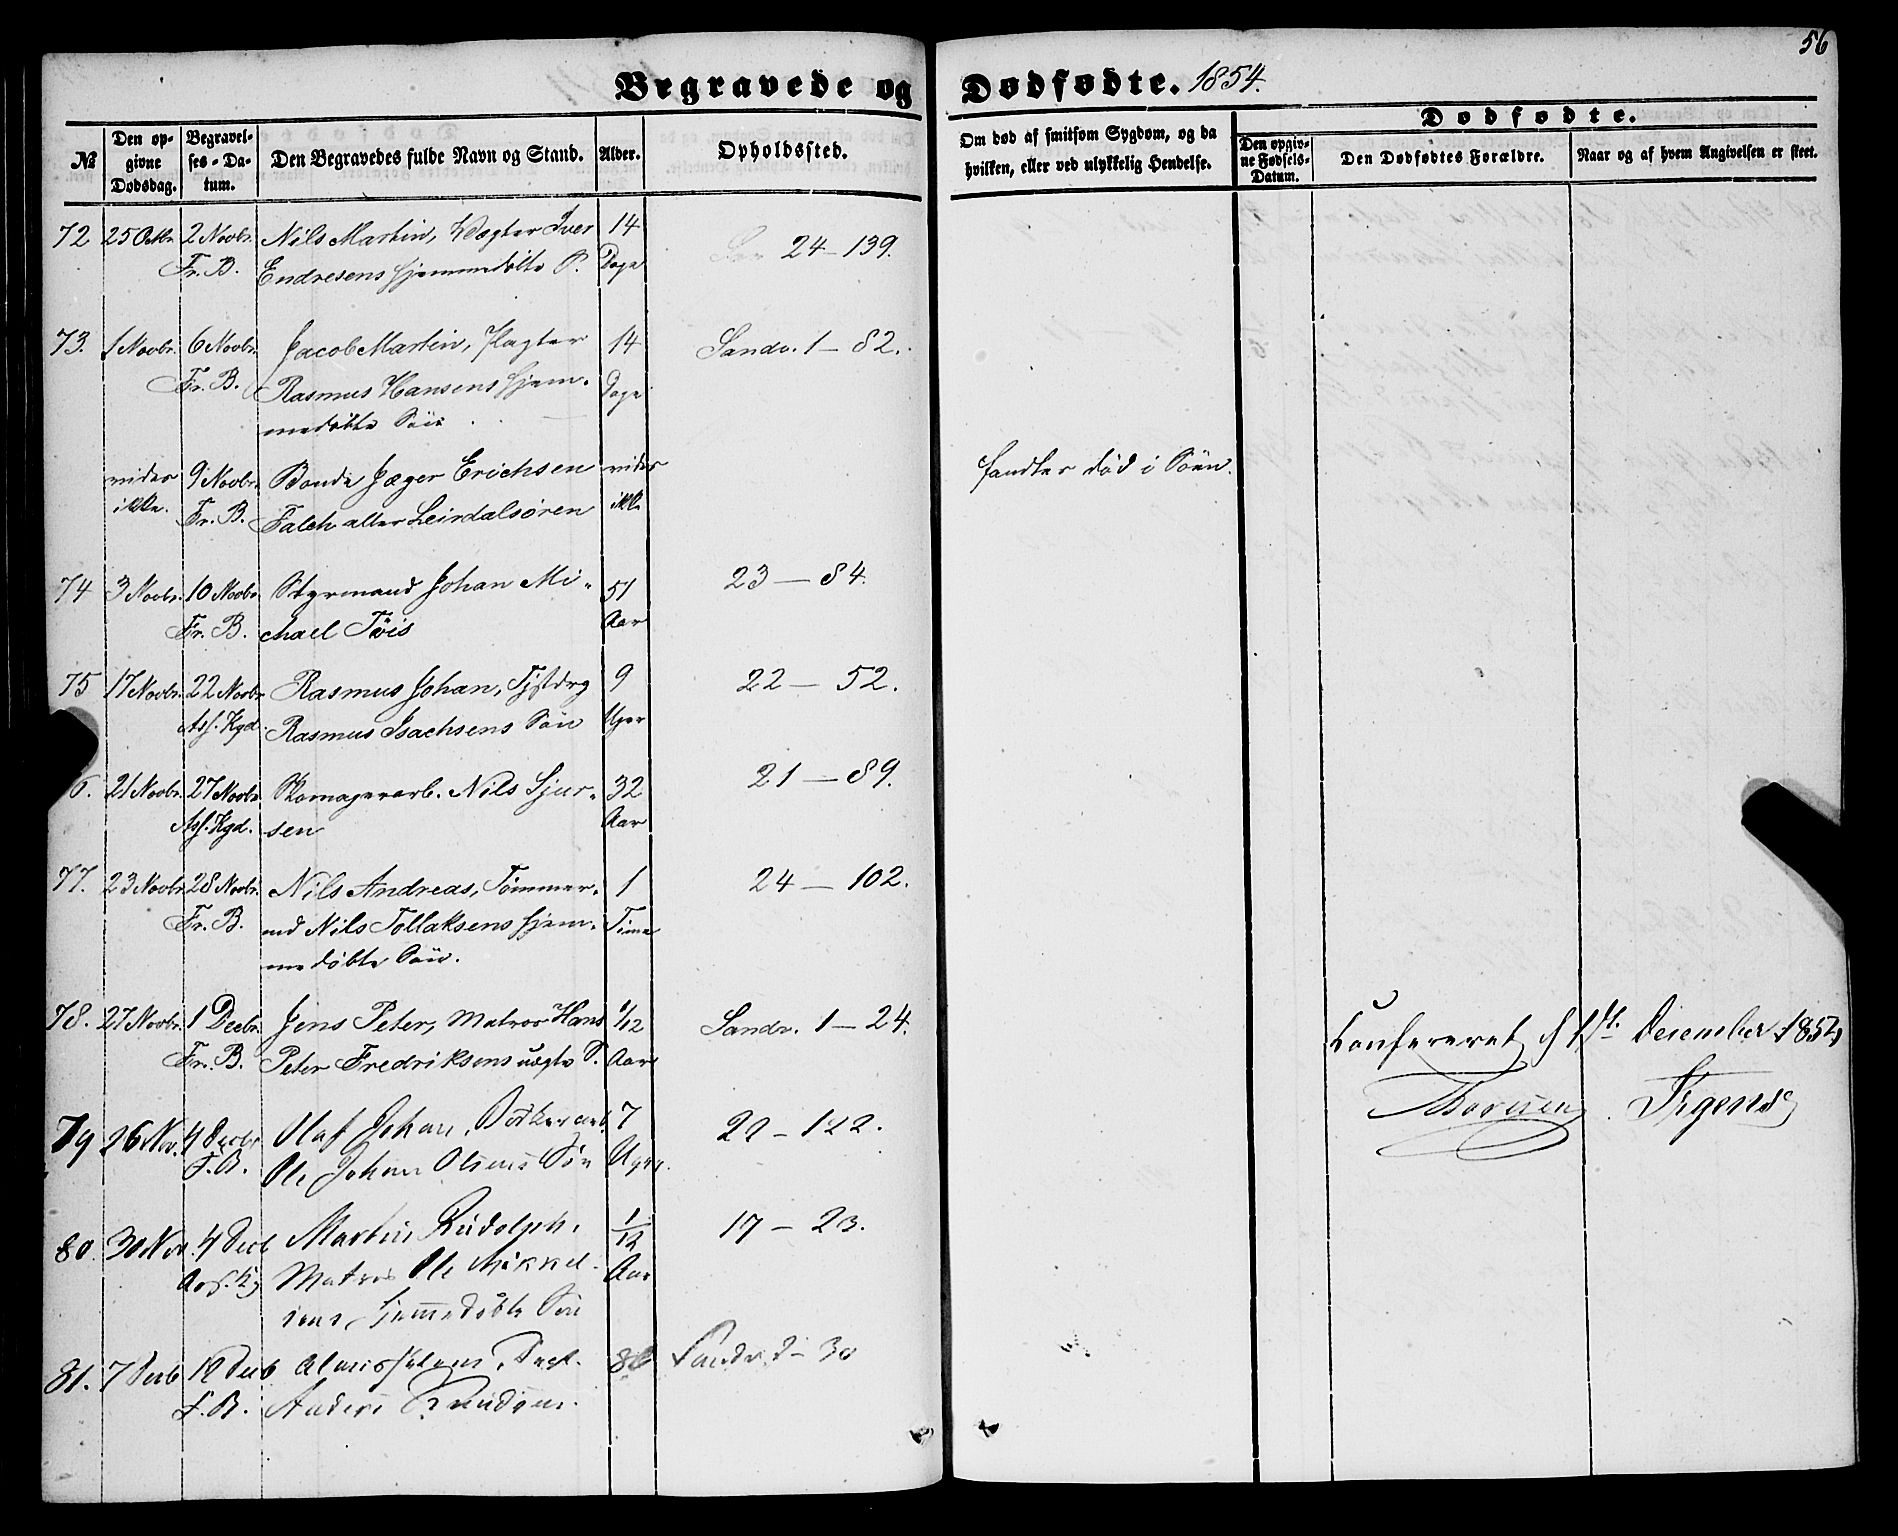 56
Begravede og Dødfødte. 1854.
№
Den op-
givne
Dødsdag.
Begravel-
ses-Da-
tum.
Den Begravedes fulde Navn og Stand.
Alder.
Opholdssted.
Om død af smitsom Sygdom, og da
hvilken, eller ved ulykkelig Hendelse.
Dødfødte.
Den opgiv-
ne Fødsels-
Datum.
Den Dødfødtes Forældre.
Naar og af hvem Angivelsen er skeet.
72 25 Octbr. 2 Novbr. Nils Martin, Vægter Iver 14 24 – 139.
Fr. B. Endresens hjemmedøbte S. Dage
73. 1 Novbr. 6 Novbr. Jacob Martin, Pagter 14 Sandv. 1 – 82.
Fr. B. Rasmus Hansens hjem- Dage
medøbte Søn
vides 9 Novbr. Bonde Jæger Erichsen vides fandtes død i Søen.
ikke. Fr. B. Falch eller Leirdalsøren ikke
74 3 Novbr. 10 Novbr. Styrmand Johan Mi- 51 23 – 84.
Fr. B. chael Tøis Aar
75 17 Novbr. 22 Novbr. Rasmus Johan, 9 22 – 52.
Ass. Kgd. Rasmus Isachsens Søn Uger
6. 21 Novbr. 27 Novbr. Skomagerarb. Nils Sjur- 32 21 – 89.
Ass. Kgd. sen Aar
77. 23 Novbr. 28 Novbr. Nils Andreas, Tømmer- 1 24 – 102.
Fr. B. md Nils Tollaksens hjem- Time
medøbte Søn.
78. 27 Novbr. 1 Decbr. Jens Peter, Matros Hans 1/12 Sandv. 1 – 24.
Fr. B. Peter Fredriksens uægte S. Aar
Confereret d 1st. December 1854
79 26 Nov. 4 Decbr. Olaf Johan, 7 22 – 122.
F. B. Ole Johan Olsens Søn Uger.
80. 30 Nov. 4 Decb Martin Rudolph, 1/12 17 – 23.
Ass. Kg Matros Ole Mikkel- Aar
sens hjemmedøbte Søn
81. 7 Decb 12 Decb 30
F. B. Anders Knudsen.